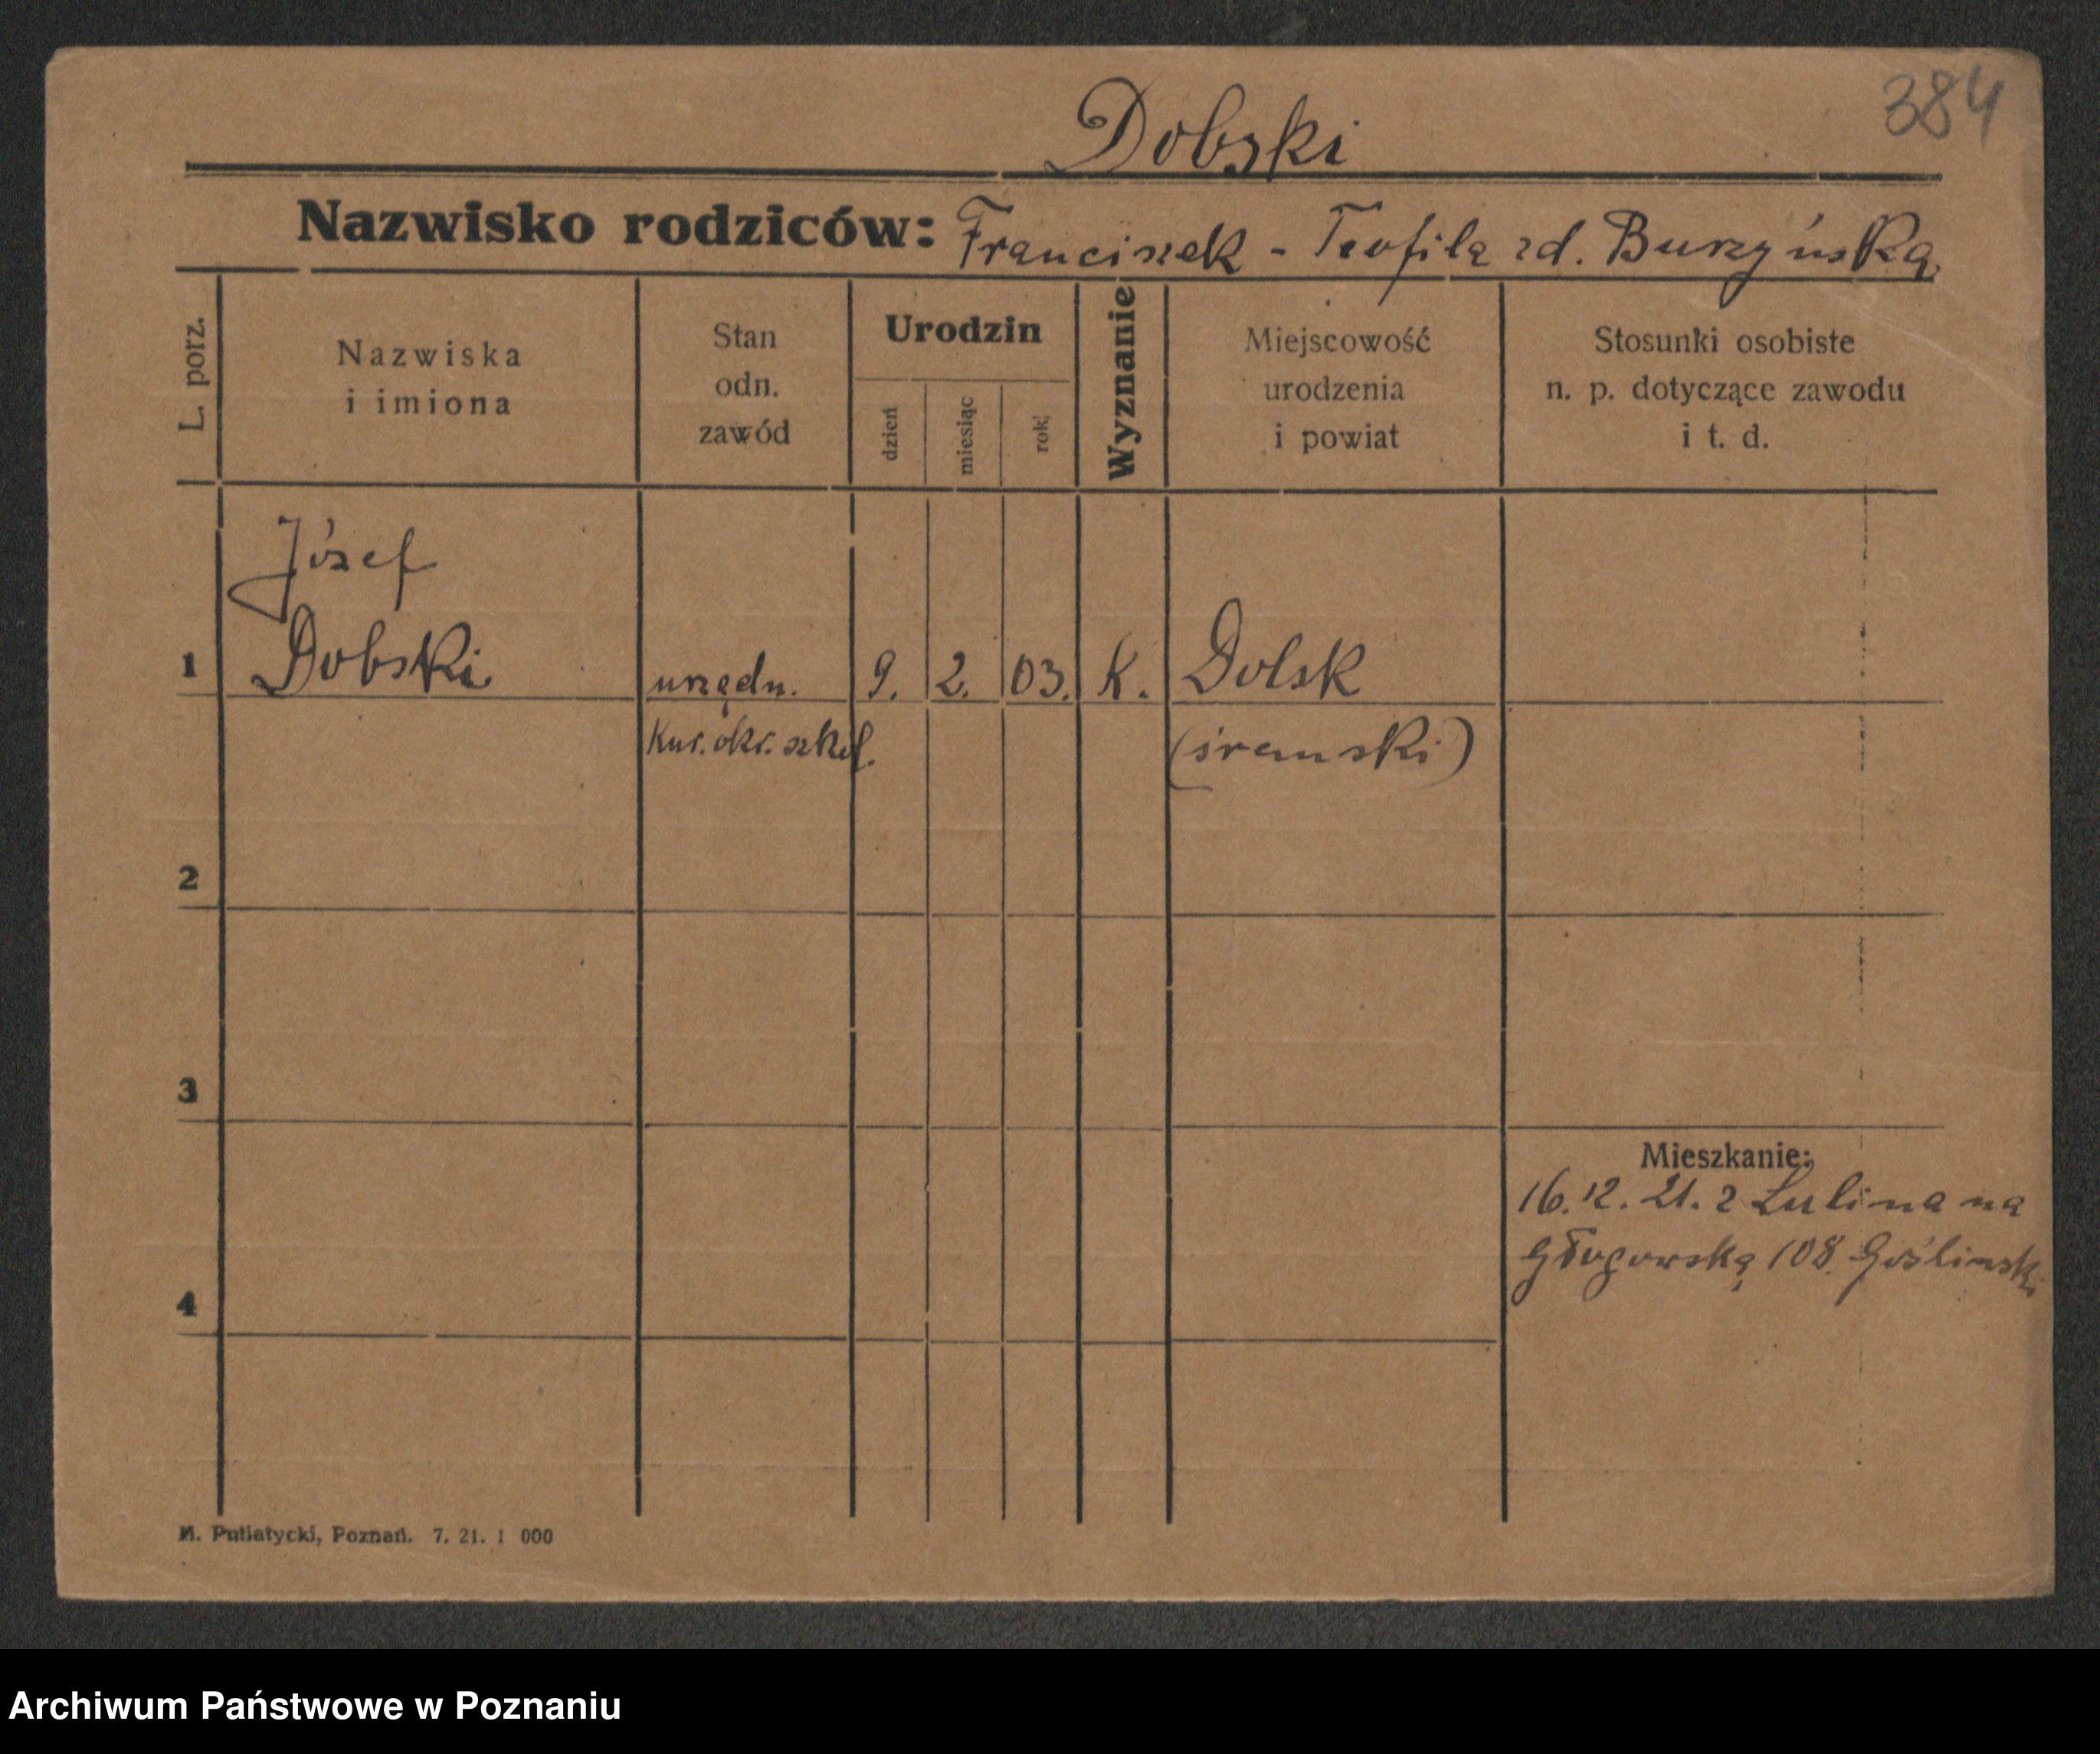 384
Dobski
Nazwisko rodziców: Franciszek - Teofila zd. Burzyńska
L. porz.
Nazwiska
i imiona
Stan
odn.
zawód
Urodzin
dzień
miesiąc
rok
Wyznanie
Miejscowość
urodzenia
i powiat
Stosunki osobiste
n. p. dotyczące zawodu
i t. d.
Józef
1 Dobski urzędn. 9. 2. 03. K. Dolsk
Kur. okr. szkol. (śremski)
2
3
Mieszkanie:
16. 12. 21. z Lulina na
Głogowską 108. Goślinski
4
M. Putiatycki, Poznań. 7. 21. 1 000
Archiwum Państwowe w Poznaniu